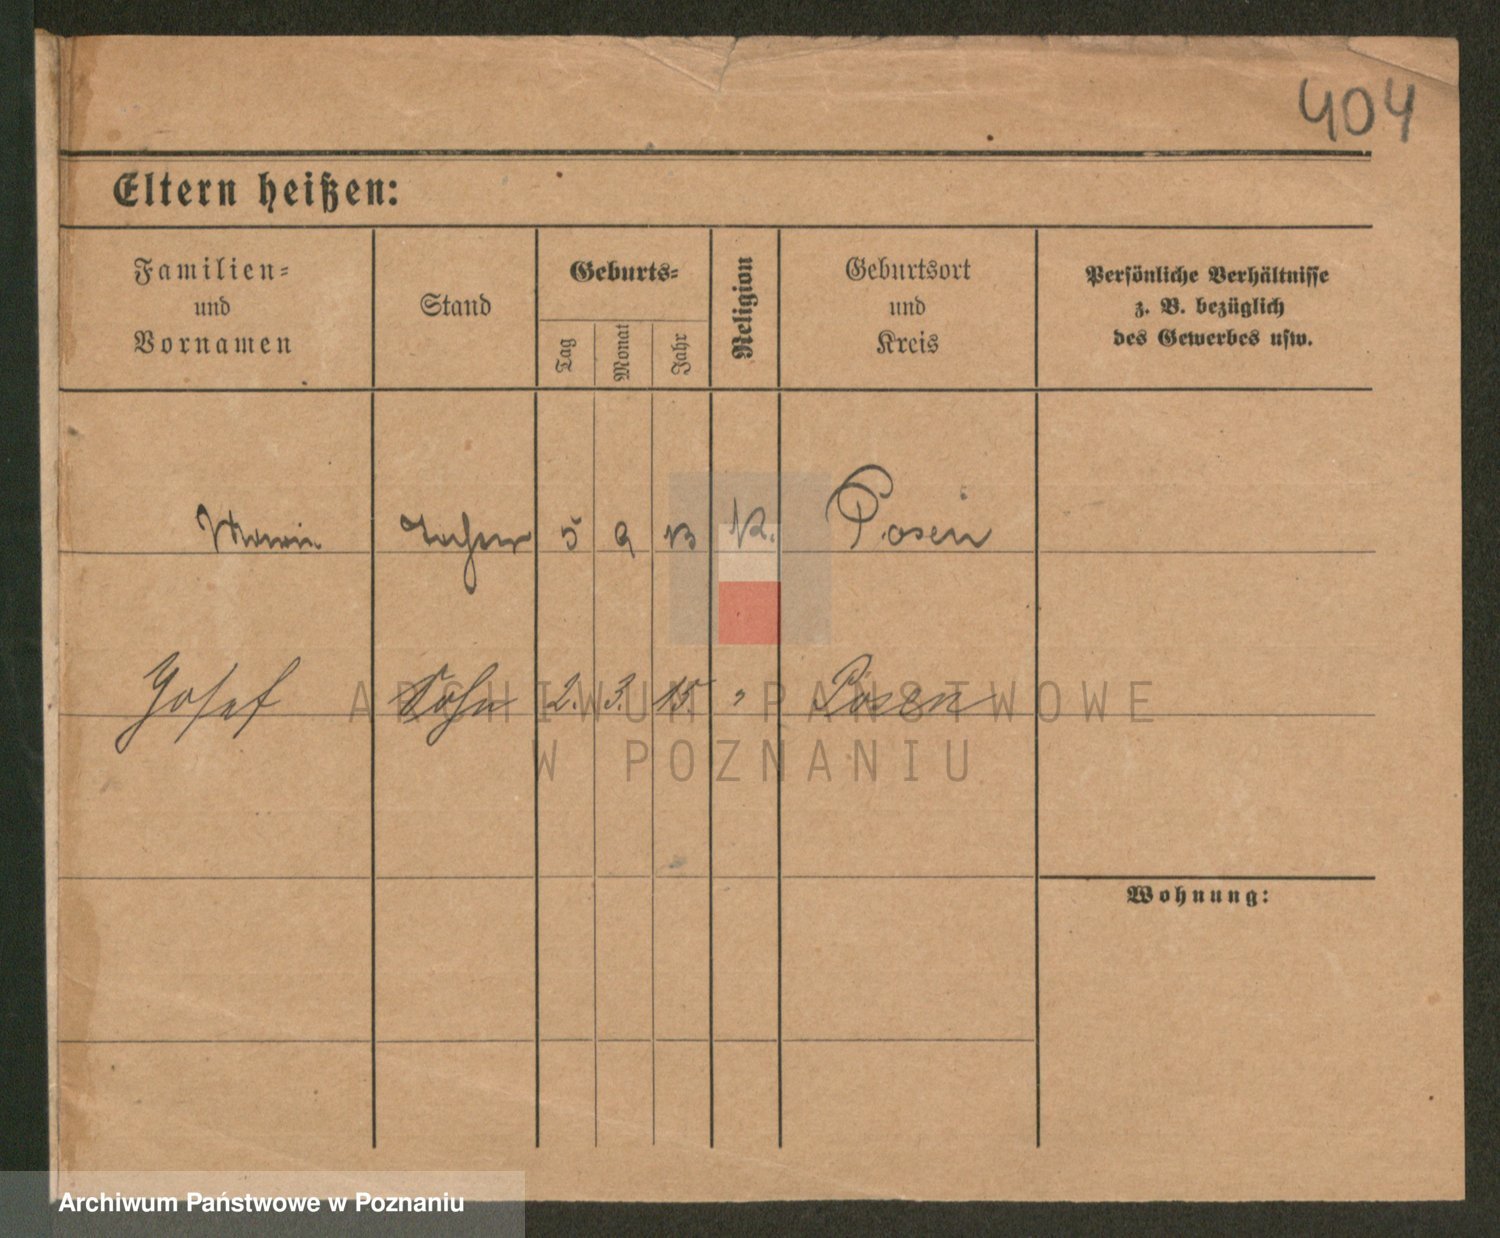 404
Eltern heißen:
Familien-
und
Vornamen
Stand
Geburts-
Tag
Monat
Jahr
Religion
Geburtsort
und
Kreis
Persönliche Verhältnisse
z. B. bezüglich
des Gewerbes usw.
Maria Tochter 5 9 13 K. Posen
Josef Sohn 2. 3. 15. " Posen
ARCHIWUM PAŃSTWOWE
W POZNANIU
Wohnung:
Archiwum Państwowe w Poznaniu